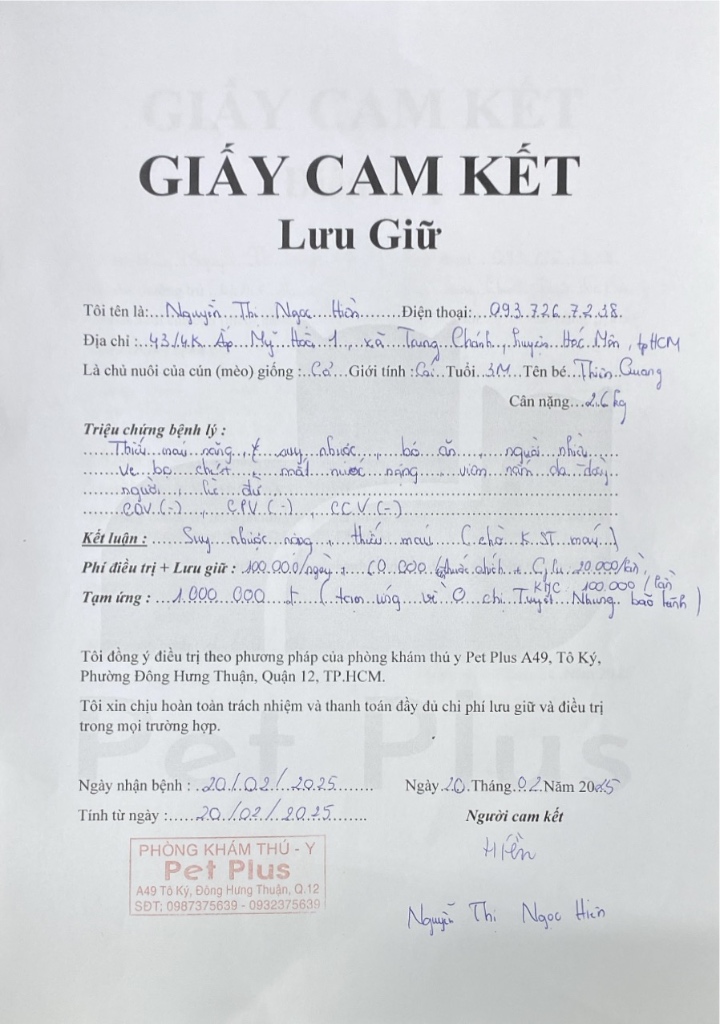 GIẤY CAM KẾT
Lưu Giữ
Tôi tên là: Nguyễn Thị Ngọc Hiền Điện thoại: 093.726.7238
Địa chỉ : 43/4K Ấp Mỹ Hoà 1, xã Trung Chánh, huyện Hóc Môn, tpHCM
Là chủ nuôi của cún (mèo) giống : Giới tính : Cái Tuổi 3M Tên bé Thiên Quang
Cân nặng 2.6 kg
Triệu chứng bệnh lý :
Thiếu máu nặng, suy nhược, bỏ ăn, người nhiều
ve bọ chét, mất nước nặng, viêm nấm da dày
người, lừ đừ
CDV (-), CPV (-), CCV (-)
Kết luận : Suy nhược nặng, thiếu máu (chờ K ST máu)
Phí điều trị + Lưu giữ : 100.000/ngày + (thuốc chích + Glu 20.000/lần,
KHC 100.000 / lần
Tạm ứng : 1.000 000 t (tạm ứng vì chị Tuyết Nhung bảo lãnh)
Tôi đồng ý điều trị theo phương pháp của phòng khám thú y Pet Plus A49, Tô Ký,
Phường Đông Hưng Thuận, Quận 12, TP.HCM.
Tôi xin chịu hoàn toàn trách nhiệm và thanh toán đầy đủ chi phí lưu giữ và điều trị
trong mọi trường hợp.
Pet Plus
Ngày nhận bệnh : 20/02/2025 Ngày 20 Tháng 02 Năm 2025
Tính từ ngày : 20/02/2025 Người cam kết
Hiền
PHÒNG KHÁM THÚ - Y
Pet Plus
A49 Tô Ký, Đông Hưng Thuận, Q.12
SĐT: 0987375639 - 0932375639
Nguyễn Thị Ngọc Hiền